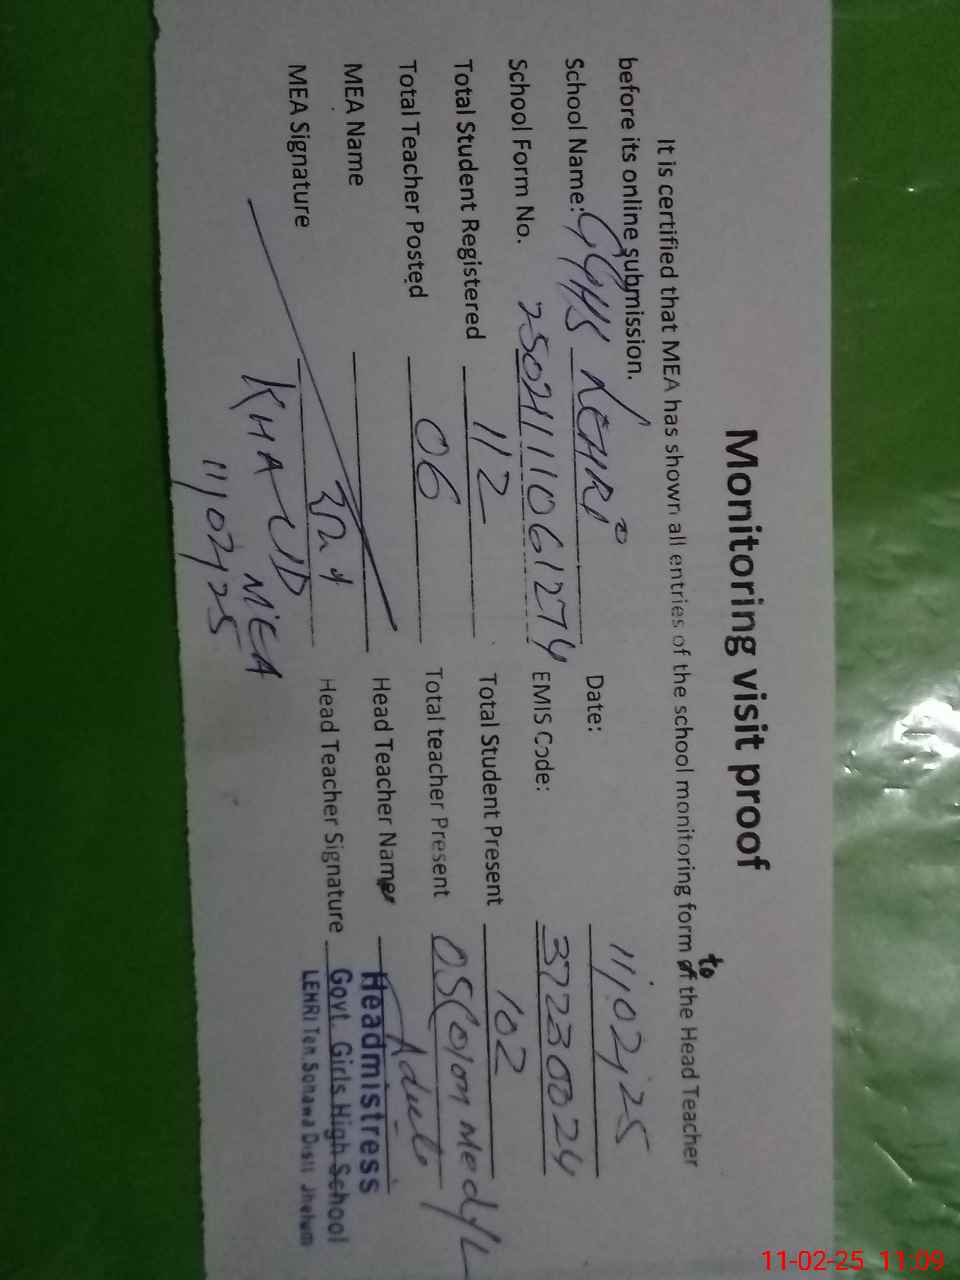 Monitoring visit proof
It is certified that MEA has shown all entries of the school monitoring form of to the Head Teacher
before its online submission.
School Name: GGHS LEHRI Date: 11/02/25
School Form No. 2502111061274 EMIS Code: 37230024
Total Student Registered 112 Total Student Present 102
Total Teacher Posted 06 Total teacher Present 05(01 on Med/L
MEA Name Head Teacher Name
MEA Signature Head Teacher Signature
KHALID
MEA
11/02/25
Headmistress
Govt. Girls High School
LEHRI Teh. Sohawa Distt Jhelum
11-02-25 11:09